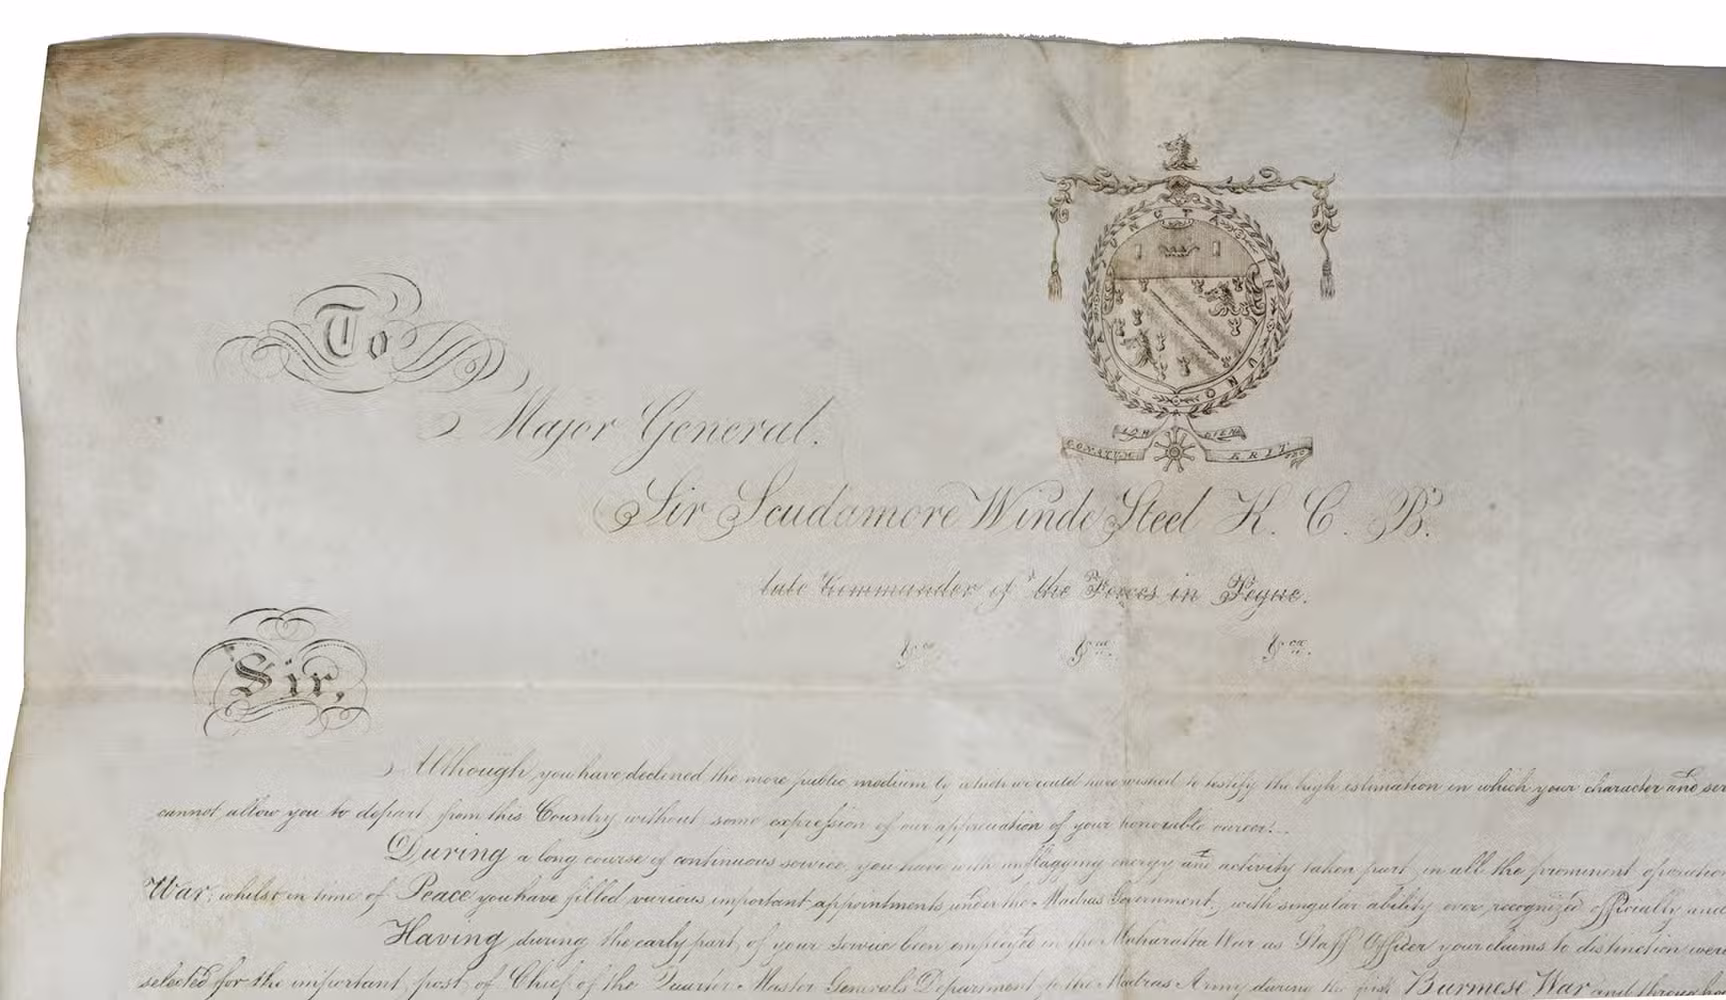 TRIA JUNCTA IN UNO
ICH DIEN
CONATEM ERIT
To
Major General.
Sir Scudamore Winde Steel K. C. B.
late Commander of the Forces in Pegue.
&ca. &ca. &ca.
Sir,
Although you have declined the more public medium by which we could have wished to testify the high estimation in which your character and ser
cannot allow you to depart from this Country without some expression of our appreciation of your honorable career.
During a long course of continuous service, you have with unflagging energy and activity taken part in all the prominent operation
War, whilst in time of Peace you have filled various important appointments under the Madras Government, with singular ability ever recognized officially and
Having during the early part of your service been employed in the Maharatta War as Staff Officer your claims to distinction were
selected for the important post of Chief of the Quarter Master Generals Department to the Madras Army during the first Burmese War and through